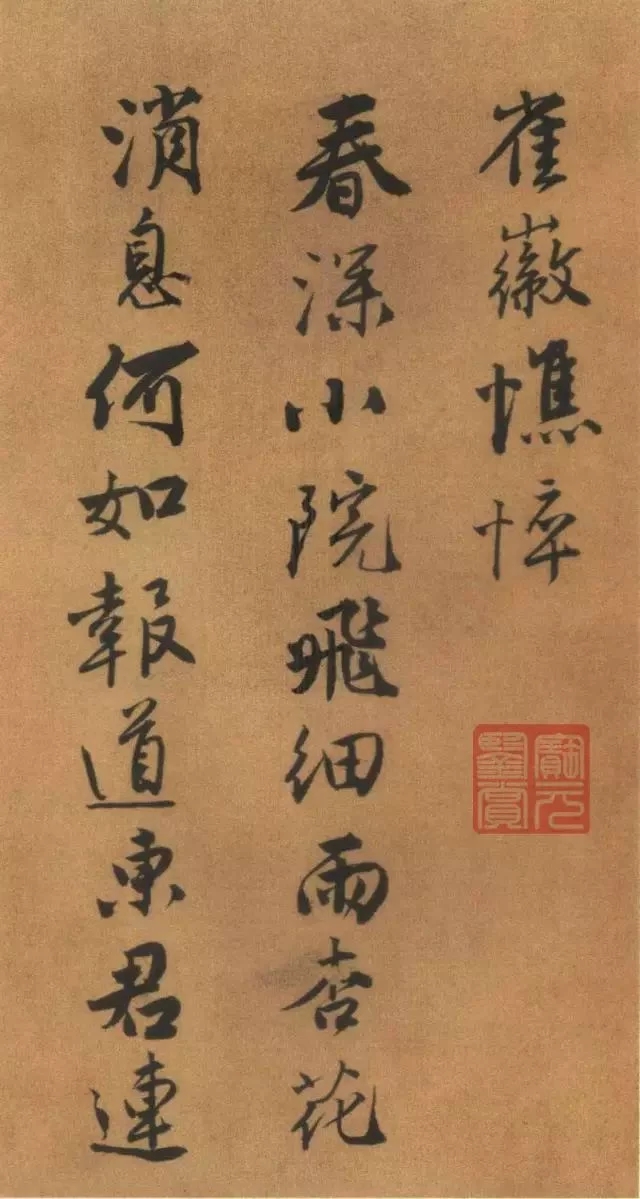 崔徽憔悴
春深小院飛細雨杏花
消息何如報道東君連
寶元
鑒賞